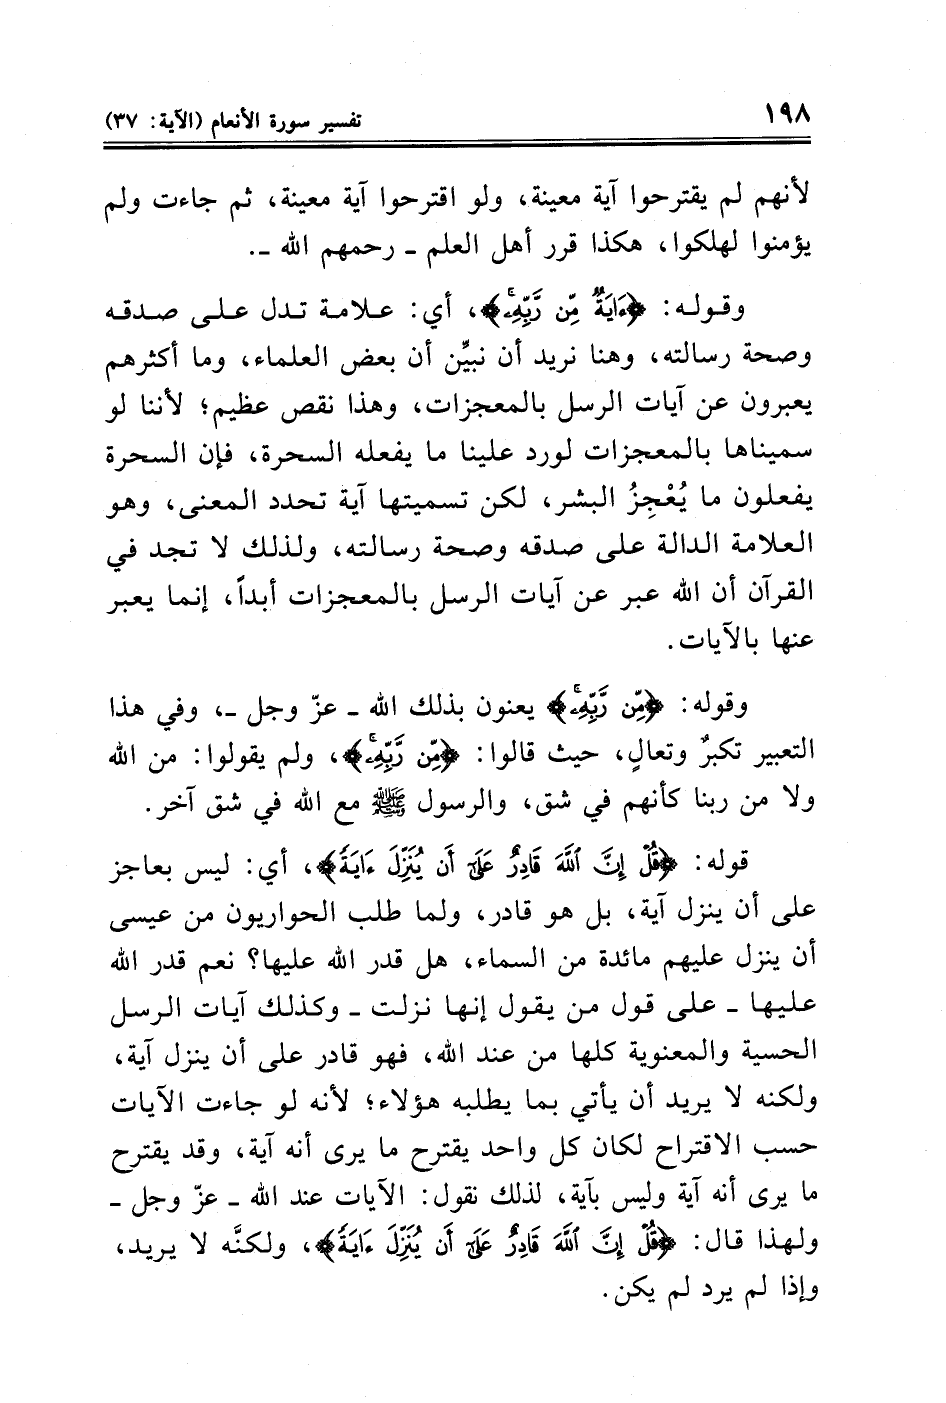 ١٩٨
تفسير سورة الأنعام (الآية: ٣٧)
لأنهم لم يقترحوا آية معينة، ولو اقترحوا آية معينة، ثم جاءت ولم
يؤمنوا لهلكوا، هكذا قرر أهل العلم ـ رحمهم الله ـ.
وقوله: ﴿ءَايَةٌ مِّن رَّبِّهِۦ﴾، أي: علامة تدل على صدقه
وصحة رسالته، وهنا نريد أن نبيِّن أن بعض العلماء، وما أكثرهم
يعبرون عن آيات الرسل بالمعجزات، وهذا نقص عظيم؛ لأننا لو
سميناها بالمعجزات لورد علينا ما يفعله السحرة، فإن السحرة
يفعلون ما يُعْجِزُ البشر، لكن تسميتها آية تحدد المعنى، وهو
العلامة الدالة على صدقه وصحة رسالته، ولذلك لا تجد في
القرآن أن الله عبر عن آيات الرسل بالمعجزات أبداً، إنما يعبر
عنها بالآيات.
وقوله: ﴿مِّن رَّبِّهِۦ﴾ يعنون بذلك الله ـ عزّ وجل ـ، وفي هذا
التعبير تكبرٌ وتعالٍ، حيث قالوا: ﴿مِّن رَّبِّهِۦ﴾، ولم يقولوا: من الله
ولا من ربنا كأنهم في شق، والرسول ﷺ مع الله في شق آخر.
قوله: ﴿قُلْ إِنَّ ٱللَّهَ قَادِرٌ عَلَىٰٓ أَن يُنَزِّلَ ءَايَةً﴾، أي: ليس بعاجز
على أن ينزل آية، بل هو قادر، ولما طلب الحواريون من عيسى
أن ينزل عليهم مائدة من السماء، هل قدر الله عليها؟ نعم قدر الله
عليها ـ على قول من يقول إنها نزلت ـ وكذلك آيات الرسل
الحسية والمعنوية كلها من عند الله، فهو قادر على أن ينزل آية،
ولكنه لا يريد أن يأتي بما يطلبه هؤلاء؛ لأنه لو جاءت الآيات
حسب الاقتراح لكان كل واحد يقترح ما يرى أنه آية، وقد يقترح
ما يرى أنه آية وليس بآية، لذلك نقول: الآيات عند الله ـ عزّ وجل ـ
ولهذا قال: ﴿قُلْ إِنَّ ٱللَّهَ قَادِرٌ عَلَىٰٓ أَن يُنَزِّلَ ءَايَةً﴾، ولكنَّه لا يريد،
وإذا لم يرد لم يكن.